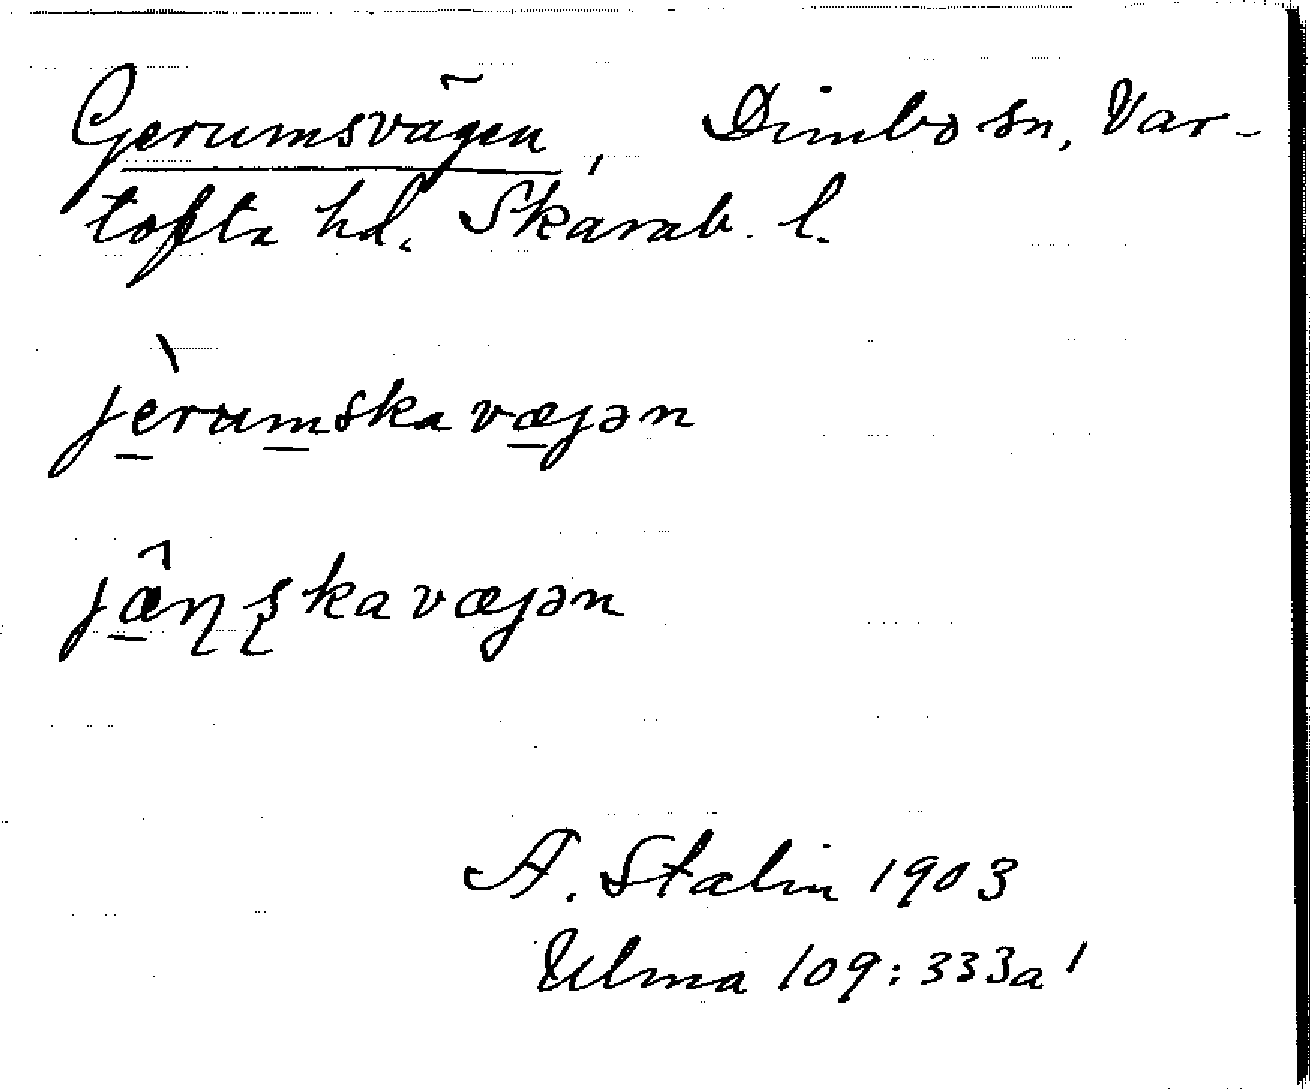 Gerumsvägen, Dimbo sn, Var-
tofta hd. Skarab. l.
jèrumskavæjən
jæ̂ɳʂkavæjən
A. Stalin 1903
Ulma 109:333a¹